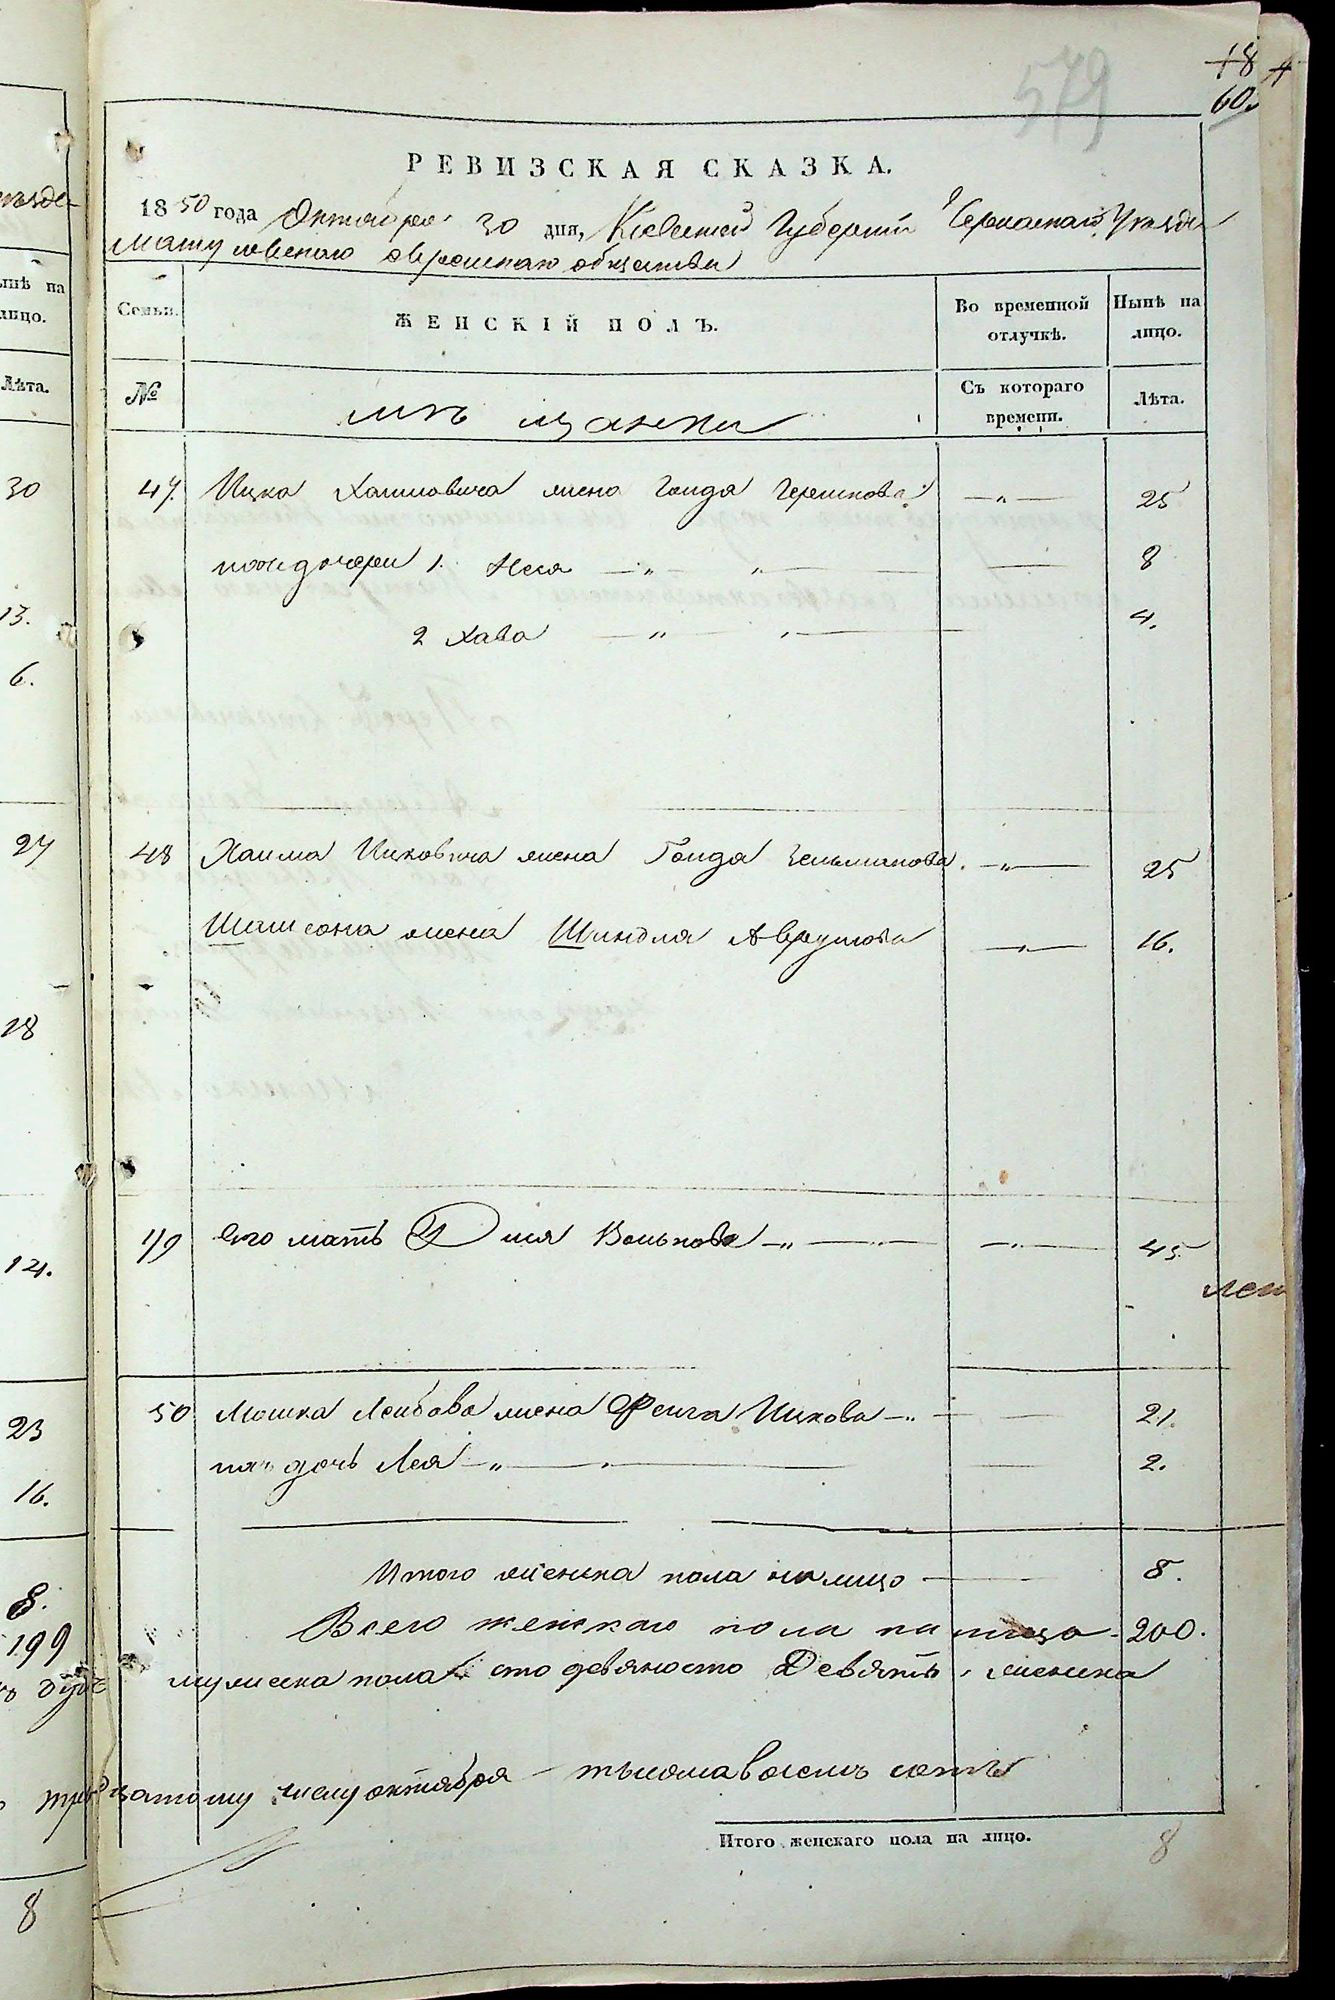 579
18 А
60.
РЕВИЗСКАЯ СКАЗКА.
1850 года Октября 30 дня, Киевской Губернии Черкаского Уезда
Матусовского еврейского общества
Семьи.
ЖЕНСКІЙ ПОЛЪ.
Во временной отлучкѣ.
Нынѣ на лицо.
№
мѣщанки
Съ котораго времени.
Лѣта.
47. Ицка Хаимовича жена Гольда Гершкова — „ — 25
ихъ дочери 1. Неся — „ — „ — 8
2 Хава — „ — 4.
48 Хаима Ицковича жена Гольда Зельманова. — „ — 25
Шамсона жена Шиндля Аврумова — „ — 16.
49 его мать Эля Волькова — „ — „ — 45
50 Мошка Лейбова жена Фейга Ицкова — „ — 21.
ихъ дочь Лея — „ — 2.
Итого женска пола на лицо — 8.
Всего женскаго пола на лицо - 200.
мужеска пола сто девяносто Девять, женска
тридцатому числу октября – тысяча восемь сотъ
Итого женскаго пола на лицо. 8
ынѣ на
лицо.
Лѣта.
30
13.
6.
27
18
14.
23
16.
8.
199
8